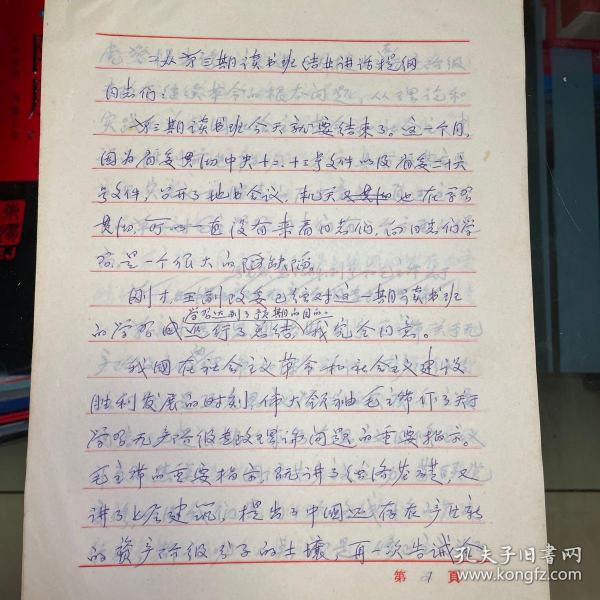 在第三期读书班结业讲话提纲
同志们
第三期读书班今天就要结束了。这一个月,
因为省委贯彻中央十二、十三号文件以及省委二十
号文件,召开了地书会议,机关又也在学习
贯彻,所以一直没有来看同志们,向同志们学
习是一个很大的缺陷。
刚才,王副政委已经对这一期读书班
学习达到了预期的目的。
的学习进行了总结,我完全同意。
我国在社会主义革命和社会主义建设
胜利发展的时刻,伟大领袖毛主席作了关于
学习无产阶级专政理论问题的重要指示。
毛主席的重要指示,既讲了经济基础,又
讲了上层建筑,提出了中国还存在产生新
的资产阶级分子的土壤,再一次告诫全
第 1 頁
孔夫子旧书网
kongfz.com